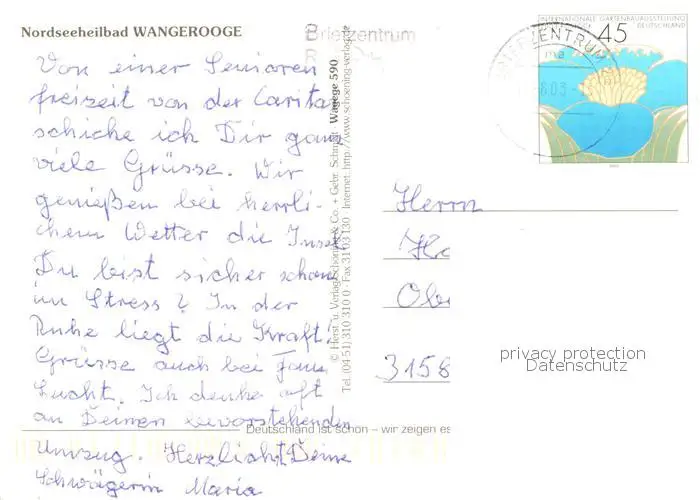 Nordseeheilbad WANGEROOGE
Briefzentrum
INTERNATIONALE GARTENBAUAUSSTELLUNG
DEUTSCHLAND
45
BRIEFZENTRUM
Von einer Senioren
freizeit von der Caritas
schicke ich Dir ganz
viele Grüsse. Wir
genießen bei herrli-
chem Wetter die Insel
Du bist sicher schon
im Stress? In der
Ruhe liegt die Kraft!
Grüsse auch bei Fam.
Lucht. Ich denke oft
an Deinen bevorstehenden
Umzug. Herzlichst Deine
Schwägerin Maria
© Herst. u. Verlag Schöning & Co. + Gebr. Schmidt · Wagege 590
Tel. (04 51) 310 310 0 · Fax 31 03 130 · Internet: http://www.schoening-verlag.de
Deutschland ist schön – wir zeigen es
Herrn
Obe
3158
privacy protection
Datenschutz